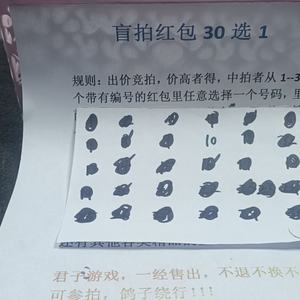 盲拍红包 30 选 1
规则：出价竞拍，价高者得，中拍者从 1--3
个带有编号的红包里任意选择一个号码，里
10
君子游戏，一经售出，不退不换不
可参拍，鸽子绕行!!!